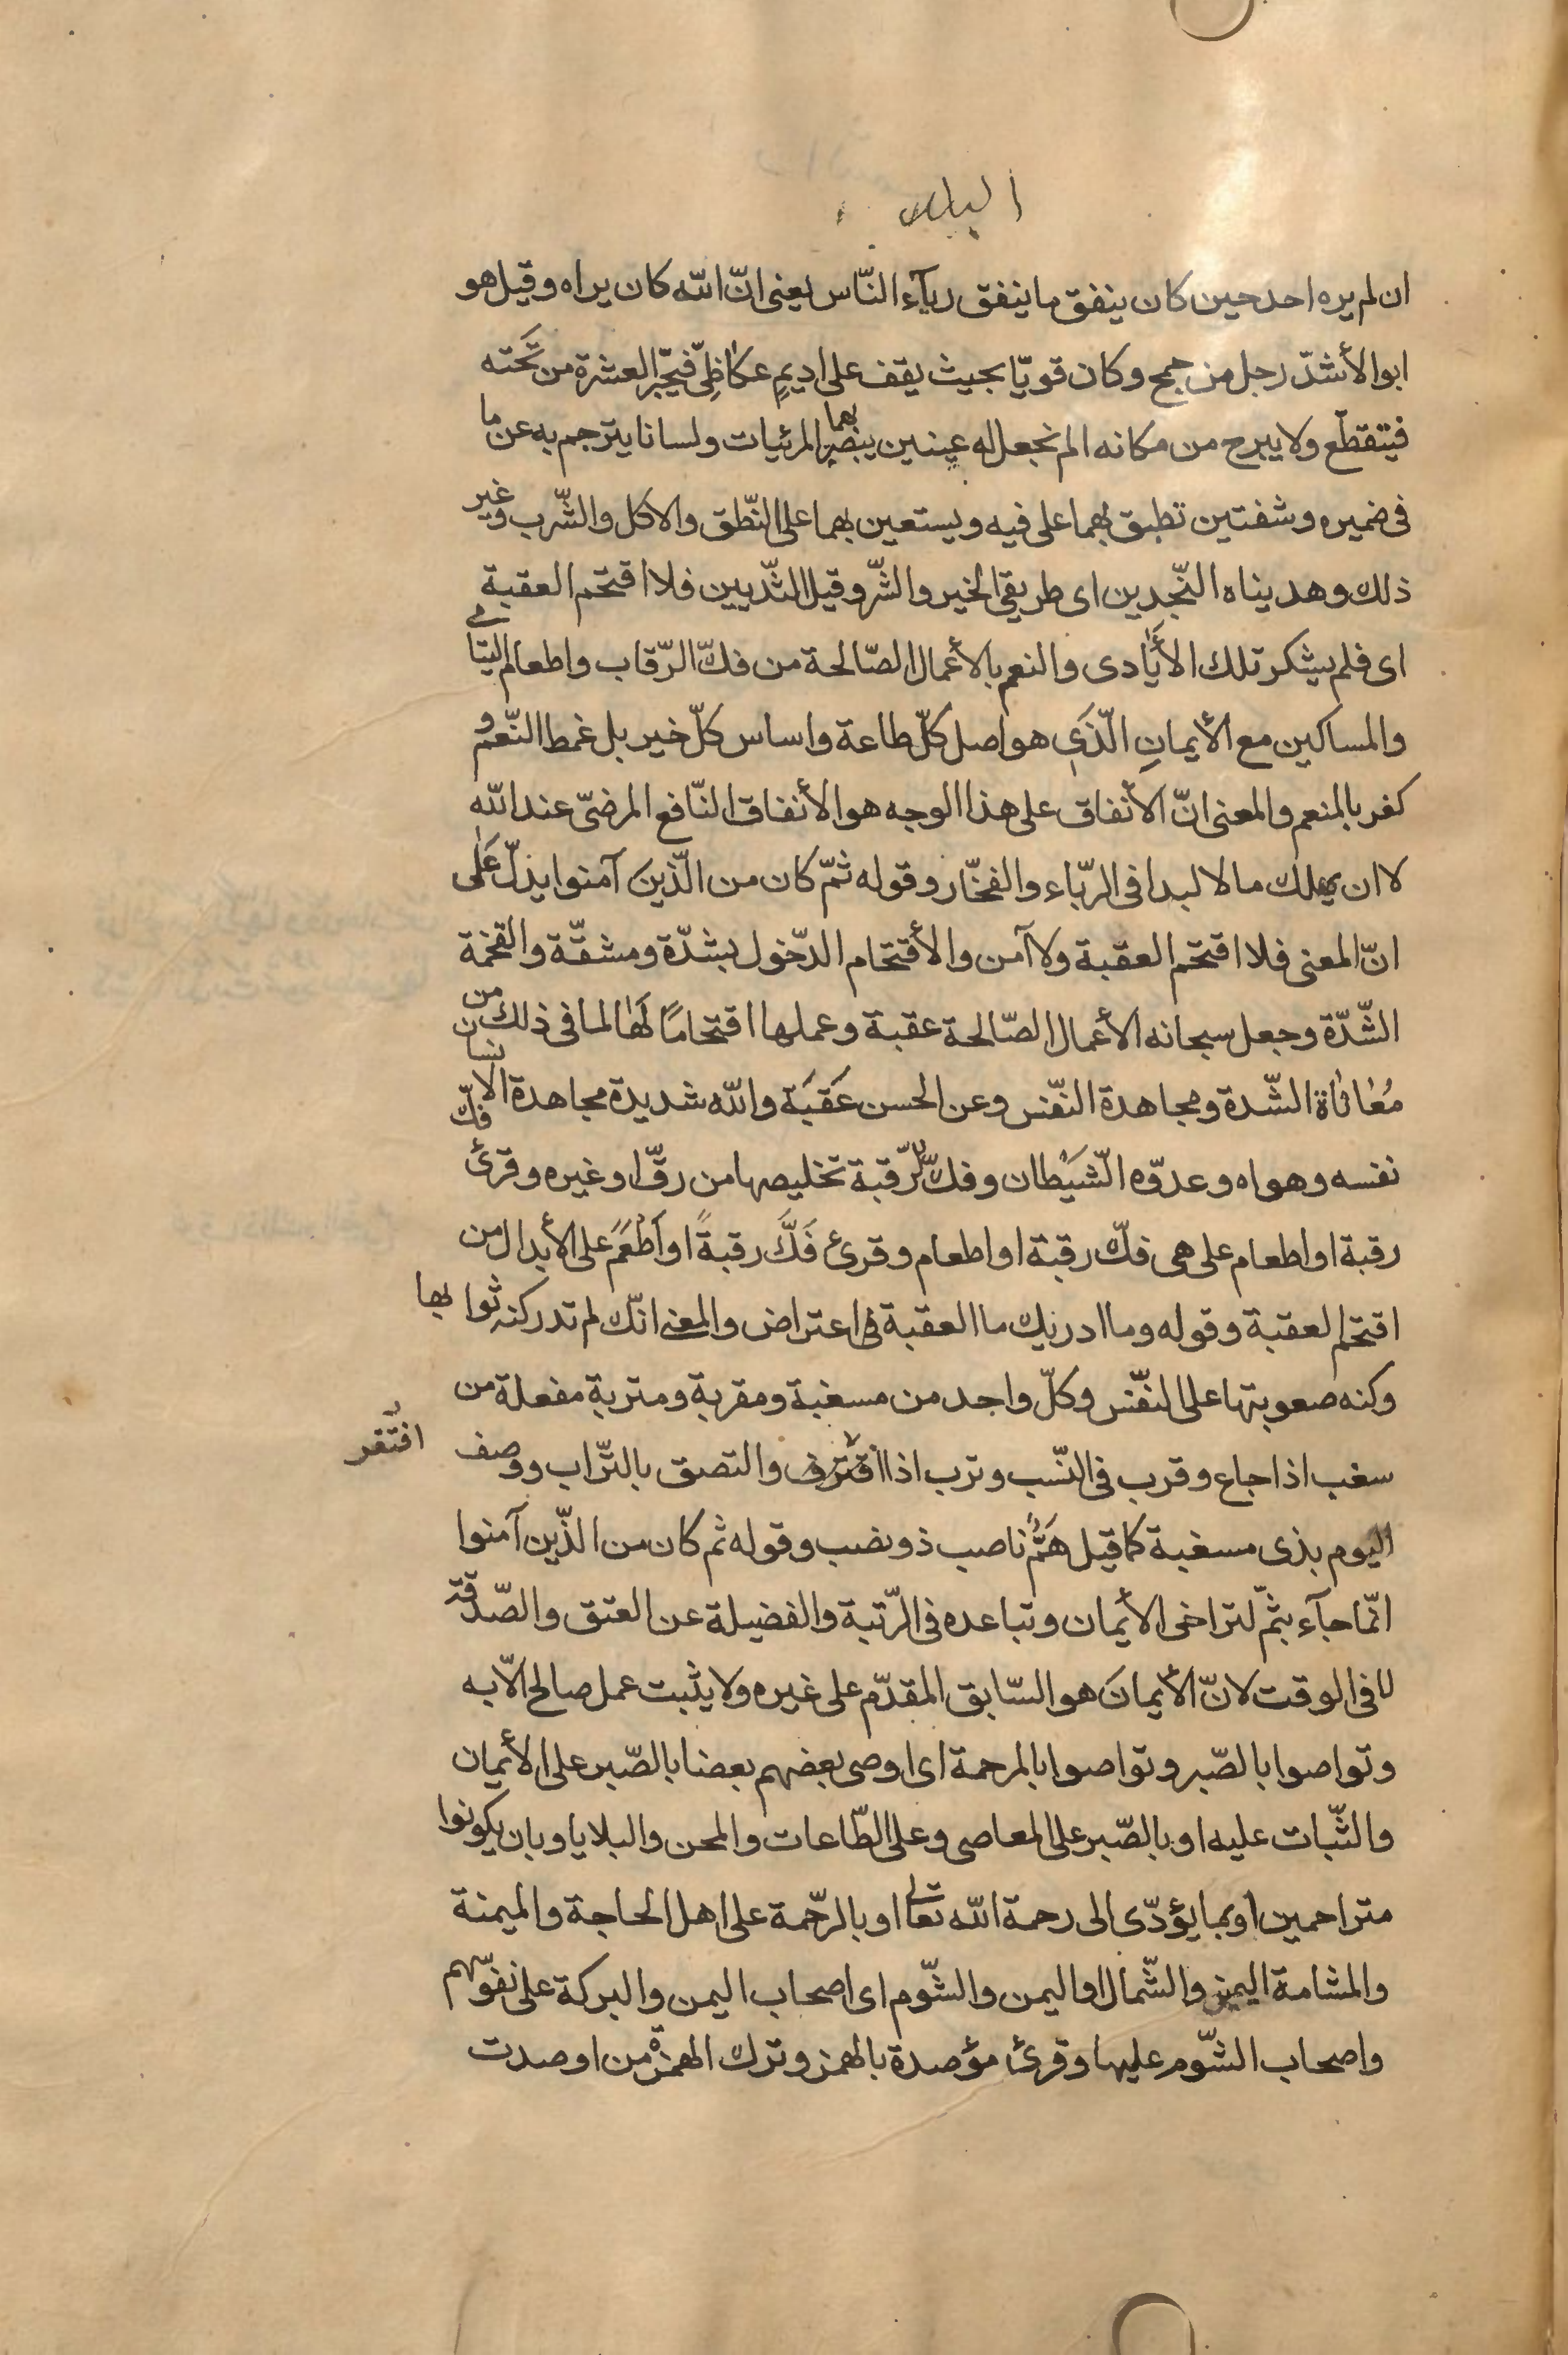 البلد
ان لم يره احد حين كان ينفق ما ينفق ريآء النّاس يعنى انّ الله كان يراه وقيل هو
ابو الأشدّ رجل من جمح وكان قويّا بحيث يقف على اديمٍ عكاظِىّ فيجرّ العشرة من تَحته
فيتقطّع ولا يبرح من مكانه الم نجعل له عينين يبصر بهما المرئيات ولسانا يترجم به عن ما
فى ضميره وشفتين تطبق بهما على فيه ويستعين بهما على النّطق والاكل والشّرب وغير
ذلك وهديناه النّجدين اى طريقى الخير والشّر وقيل الثّديين فلا اقتحم العقبة
اى فلم يشكر تلك الأيادى والنعم بالأعمال الصّالحة من فكّ الرّقاب واطعام اليتامى
والمساكين مع الأيمانِ الّذى هو اصل كلّ طاعة واساس كلّ خير بل غمط النّعم و
كفر بالمنعم والمعنى انّ الأنفاق على هذا الوجه هو الأنفاق النّافع المرضىّ عند الله
لا ان يهلك مالا لبدا فى الرّياء والفخّار وقوله ثمّ كان من الّذين آمنوا يدلّ عَلى
انّ المعنى فلا اقتحم العقبة ولا آمن والأقتحام الدّخول بشدّة ومشقّة والقحمة
الشّدّة وجعل سبحانه الأعمال الصّالحة عقبة وعملها اقتحامًا لَها لما فى ذلك من
مُعاناة الشّدة ومجاهدة النّفس وعن الحسن عَقَبَة والله شديدة مجاهدة الانسان
نفسه وهواه وعدوّه الشّيْطان وفكّ الرّقبة تخليصها من رقّ او غيره وقرئ فكّ
رقبة او اطعام على هى فكّ رقبة او اطعام وقرئ فَكَّ رقبةً او اَطْعَمَ على الأبدال من
اقتحم العقبة وقوله وما ادريك ما العقبة فى اعتراض والمعنى انّك لم تدر كنه ثوابها
وكنه صعوبتها على النفّس وكلّ واحد من مسغبة ومقربة ومتربة مفعلة من
سغب اذا جاع وقرب فى النّسب وترب اذا اقترف والتصق بالتّراب ووصف
افتقر
اليوم بذى مسغبة كما قيل هَمٌّ ناصب ذو نصب وقوله ثم كان من الذّين آمنوا
انّما جآء بثمّ لتراخى الأيمان وتباعده فى الرّتبة والفضيلة عن العتق والصّدقة
لا فى الوقت لانّ الأيمانَ هو السّابق المقدّم على غيره ولا يثبت عمل صالح الّا به
وتواصوا بالصّبر وتواصوا بالمرحمة اى اوصى بعضهم بعضا بالصّبر على الأيمان
والثّبات عليه او بالصّبر على المعاصى وعلى الطّاعات والمحن والبلايا وبان يكونوا
متراحمين او بما يؤدّى الى رحمة الله تعالى او بالرّحمة على اهل الحاجة والميمنة
والمشامة اليمين والشّمال او اليمن والشّوم اى اصحاب اليمن والبركة على نفوسهم
واصحاب الشّوم عليها وقرئ مؤصدة بالهمز وترك الهمزة من اوصدت